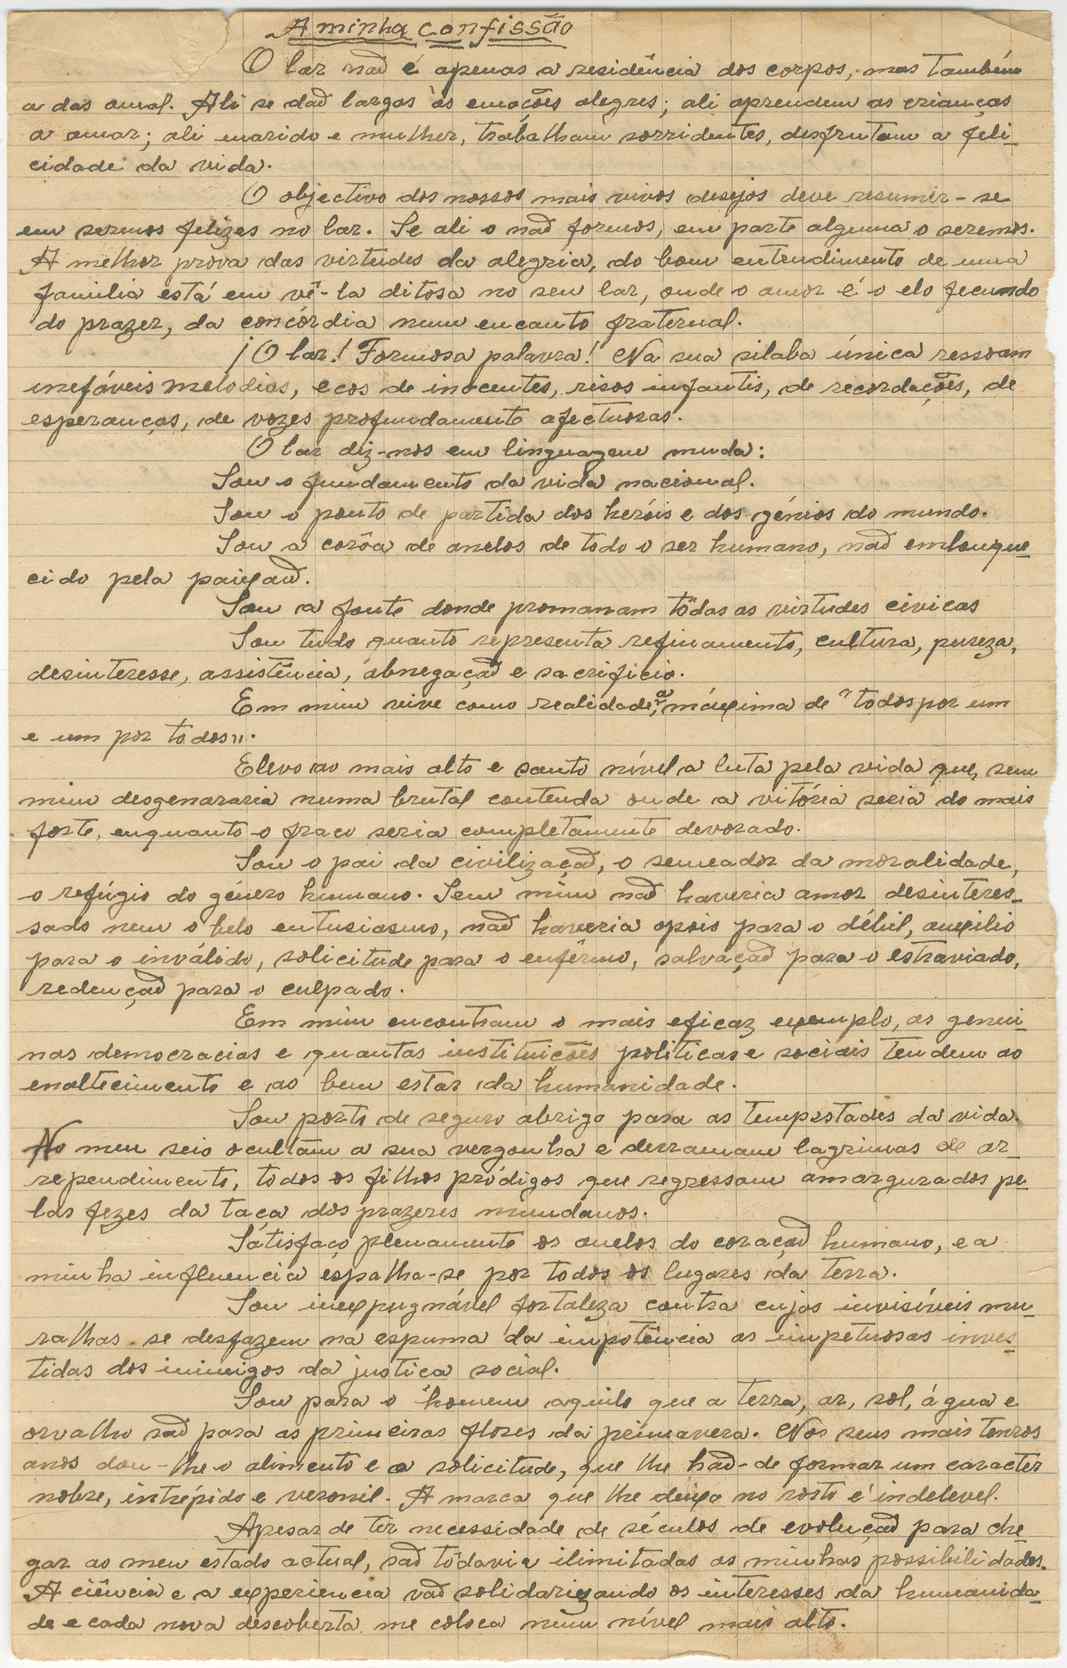 A minha confissão
O lar não é apenas a residência dos corpos, mas também
a das almas. Ali se dão largas às emoções alegres; ali aprendem as crianças
a amar; ali marido e mulher, trabalham sorridentes, desfrutam a feli-
cidade da vida.
O objectivo dos nossos mais vivos desejos deve resumir-se
em sermos felizes no lar. Se ali o não formos, em parte alguma o seremos.
A mélhor prova das virtudes da alegria, do bom entendimento de uma
familia está em vê-la ditosa no seu lar, onde o amor é o elo fecundo
do prazer, da concórdia num encanto fraternal.
¡O lar! Formosa palavra! Na sua silaba única ressoam
inefáveis melodias, ecos de inocentes, risos infantis, de recordações, de
esperanças, de vozes profundamente afectuosas.
O lar diz-nos em linguagem muda:
Sou o fundamento da vida nacional.
Sou o ponto de partida dos heróis e dos génios do mundo.
Sou a corôa de anelos de todo o ser humano, não emlouque-
cido pela paixão.
Sou a fonte donde promanam tôdas as virtudes civicas
Sou tudo quanto representa refinamento, cultura, pureza,
desinteresse, assistência, abnegação e sacrificio.
Em mim vive como realidade, a máxima de "todos por um
e um por todos".
Elevo ao mais alto e santo nível a luta pela vida que, sem
mim desgenararia numa brutal contenda onde a vitória seria do mais
forte, enquanto o fraco seria completamente devorado.
Sou o pai da civilização, o semeador da moralidade,
o refúgio do género humano. Sem mim não haveria amor desinteres-
sado nem o belo entusiasmo, não haveria apoio para o débil, auxilio
para o inválido, solicitude para o enfêrmo, salvação para o estraviado,
redenção para o culpado.
Em mim encontram o mais eficaz exemplo, as genui-
nas democracias e quantas instituições politicas e sociais tendem ao
enaltecimento e ao bem estar da humanidade.
Sou porto de seguro abrigo para as tempestades da vida.
No meu seio ocultam a sua vergonha e derramam lagrimas de ar-
rependimento, todos os filhos pródigos que regressam amargurados pe-
las fezes da taça dos prazeres mundanos.
Satisfaço plenamente os anelos do coração humano, e a
minha influencia espalha-se por todos os lugares da terra.
Sou inexpugnável fortaleza contra cujas invisíveis mu-
ralhas se desfazem na espuma da impotência as impetuosas inves-
tidas dos inimigos da justiça social.
Sou para o homem aquilo que a terra, ar, sol, água e
orvalho são para as primeiras flores da primavera. Nos seus mais tenros
anos dou-lhe o alimento e a solicitude, que lhe hão-de formar um caracter
nobre, intrépido e veronil. A marca que lhe deixo no rosto é indelevel.
Apesar de têr necessidade de séculos de evolução para che-
gar ao meu estado actual, são tôdavia ilimitadas as minhas possibilidades.
A ciência e a experiencia vão solidarizando os interesses da humanida-
de e cada nova descoberta me coloca num nível mais alto.